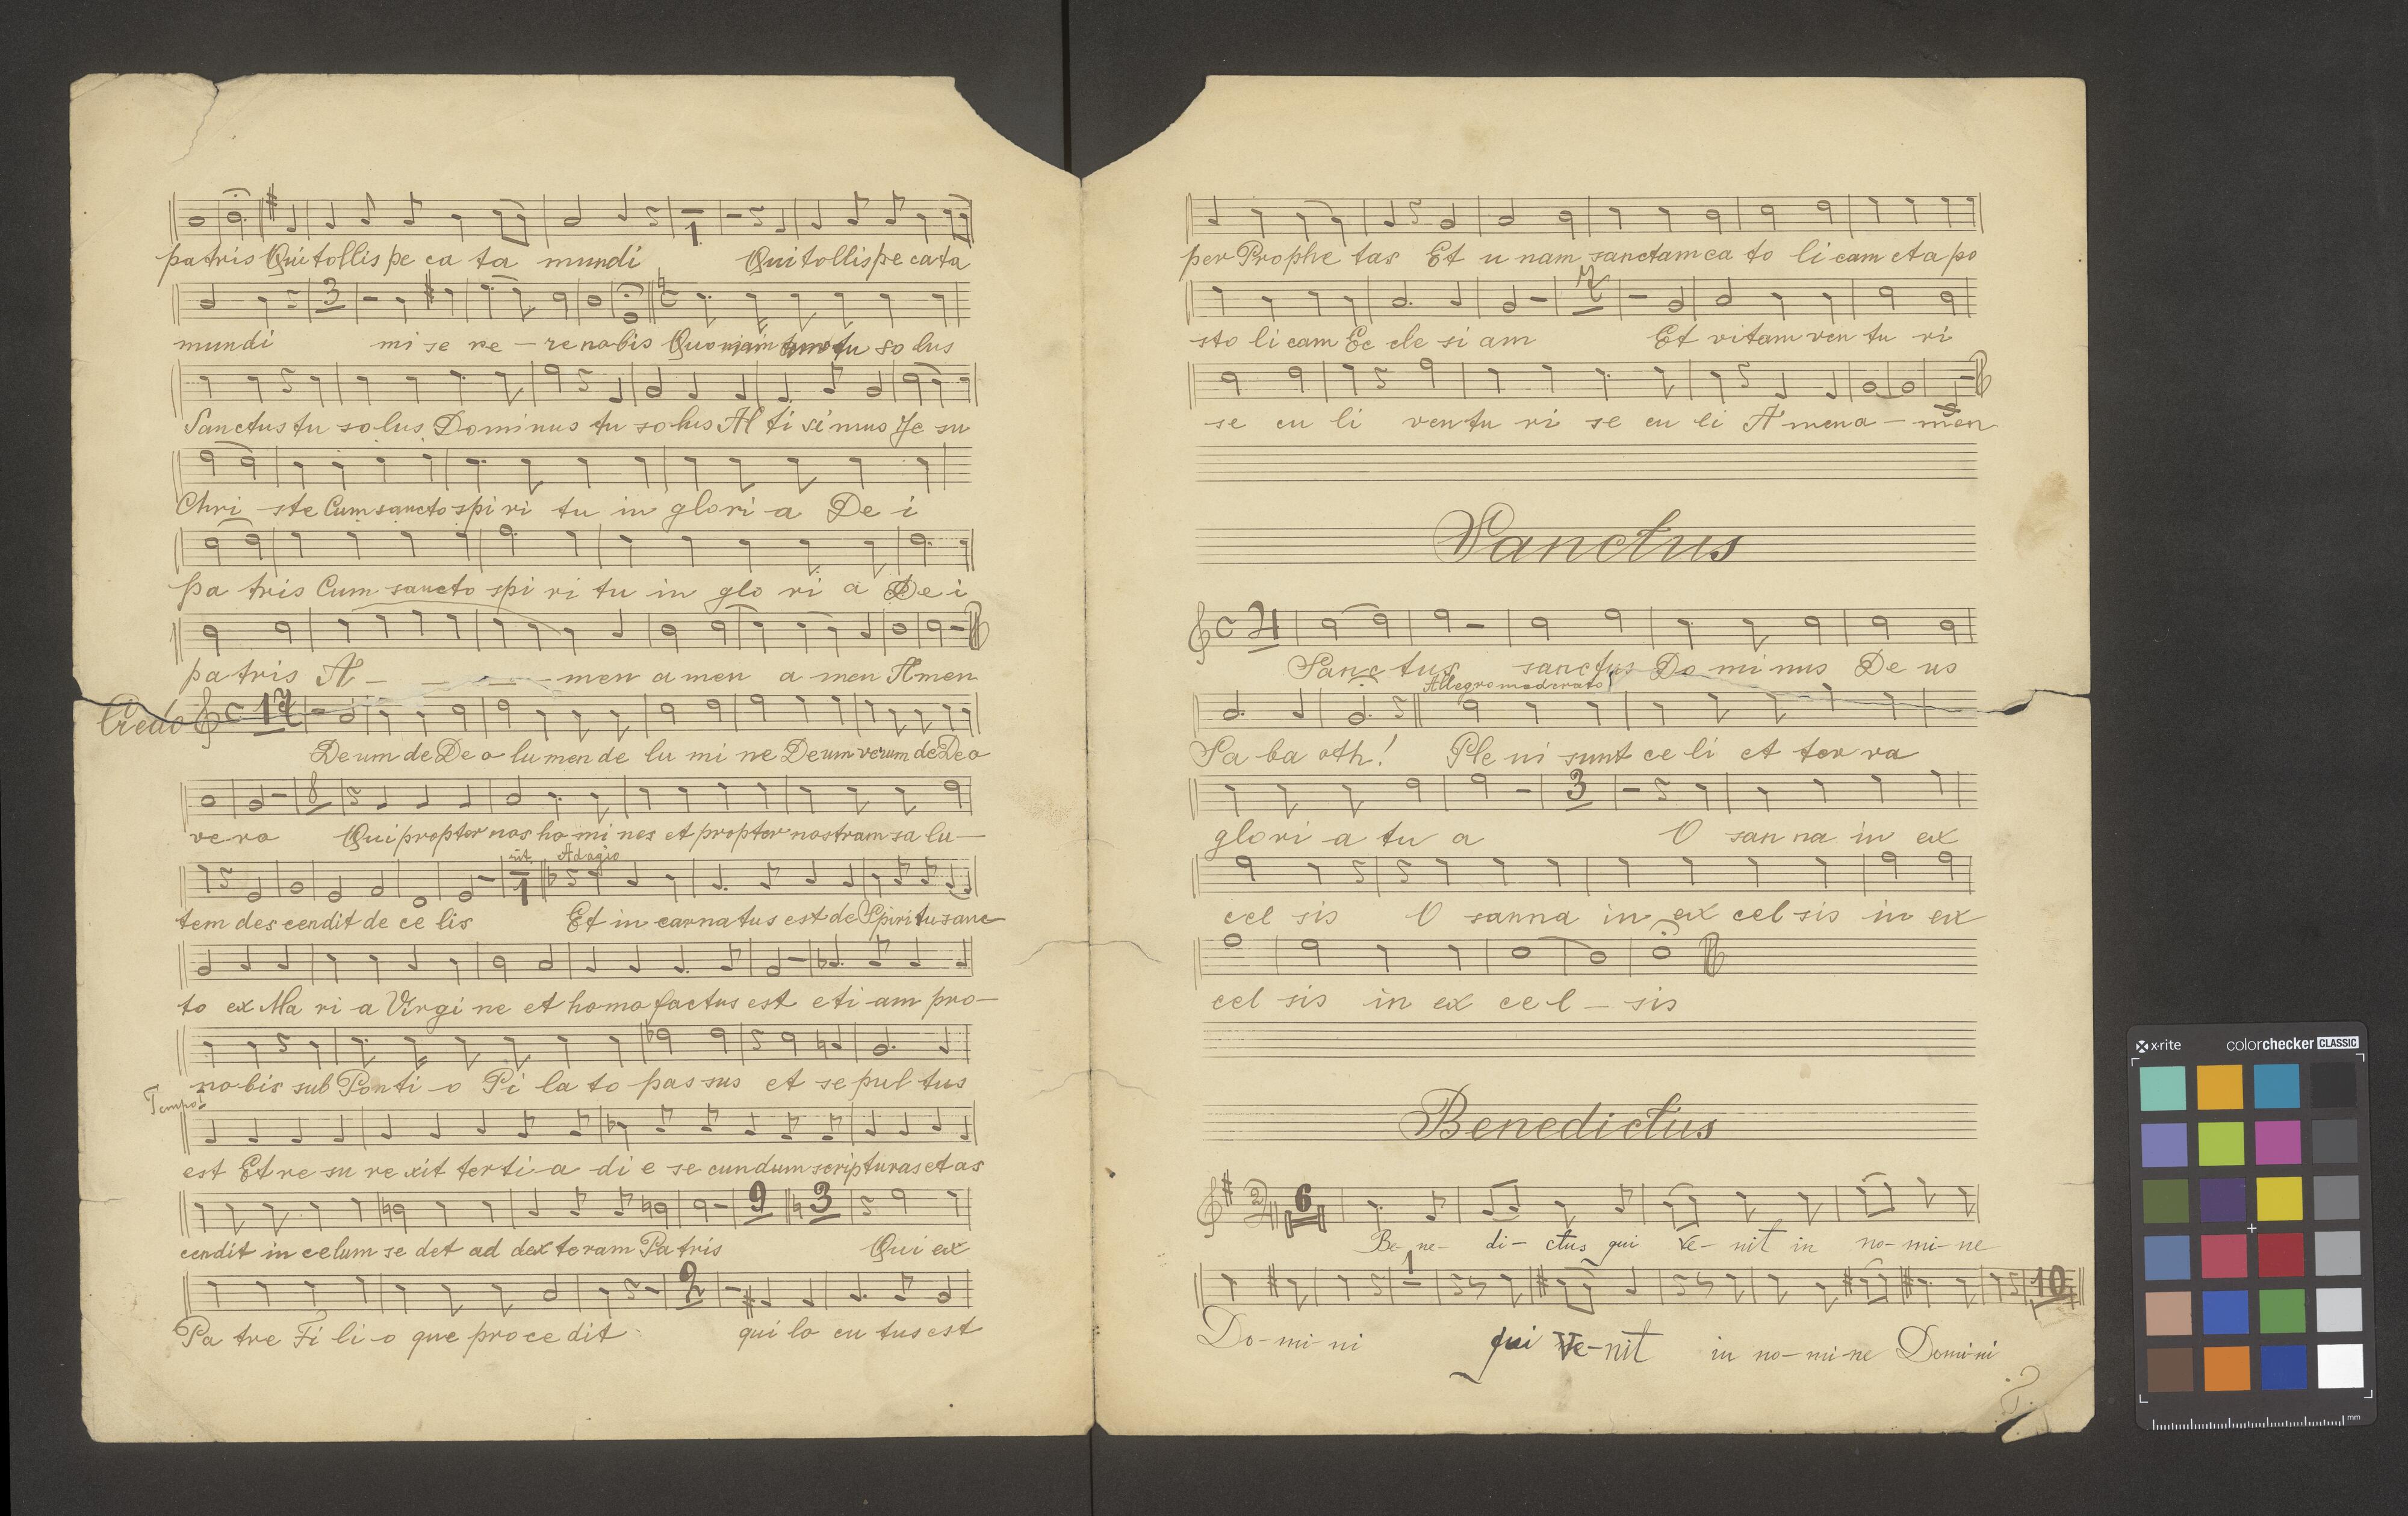 patris Qui tollis pe ca ta mundi Qui tollis pe cata
1
mundi mi se re – re nobis Quoniam tu so lus
3
Sanctus tu solus Dominus tu solus Al ti si mus Je su
Chri ste Cum sancto spi ri tu in glori a De i
pa tris Cum sancto spi ri tu in glo ri a De i
pa tris A – – – – men a men a men Amen
Credo C 17
De um de De o lu men de lu mi ne Deum verum de Deo
8
vero Qui propter nos ho mi nes et propter nostram sa lu –
rit. Adagio
1
tem des cendit de ce lis Et in carnatus est de Spiritu sanc
to ex Ma ri – a Virgi ne et homo factus est eti – am pro –
nobis sub Ponti – o Pi la to passus et se pul tus
Tempo I
est Et re su re xit terti – a di e se cundum scripturas et as
9 3
cendit in celum se det ad dex teram Patris Qui ex
2
Pa tre Fi li – o que pro ce dit qui lo cu tus est
per Prophe tas Et u nam sanctam ca to li cam et a po
sto li cam Ec cle si am Et vitam ven tu ri
se cu li ven tu ri se cu li A mena – men
Sanctus
C 21
Sanc tus sanctus Do mi nus De us
Allegro moderato
Sa ba oth! Ple ni sunt ce li et ter ra
3
glori a tu a O san na in ex
cel sis O sanna in ex cel sis in ex
cel sis in ex cel – sis
Benedictus
6
Be-ne- di- ctus qui Ve- nit in no-mi-ne
1 10
Do-mi-ni qui Ve-nit in no-mi-ne Domi-ni